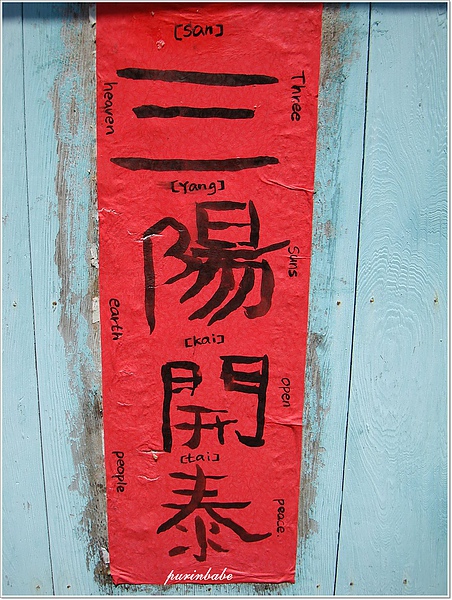 [san]
三
[Yang]
陽
[kai]
開
[tai]
泰
Three
Suns
open
peace.
heaven
earth
people
purinbabe